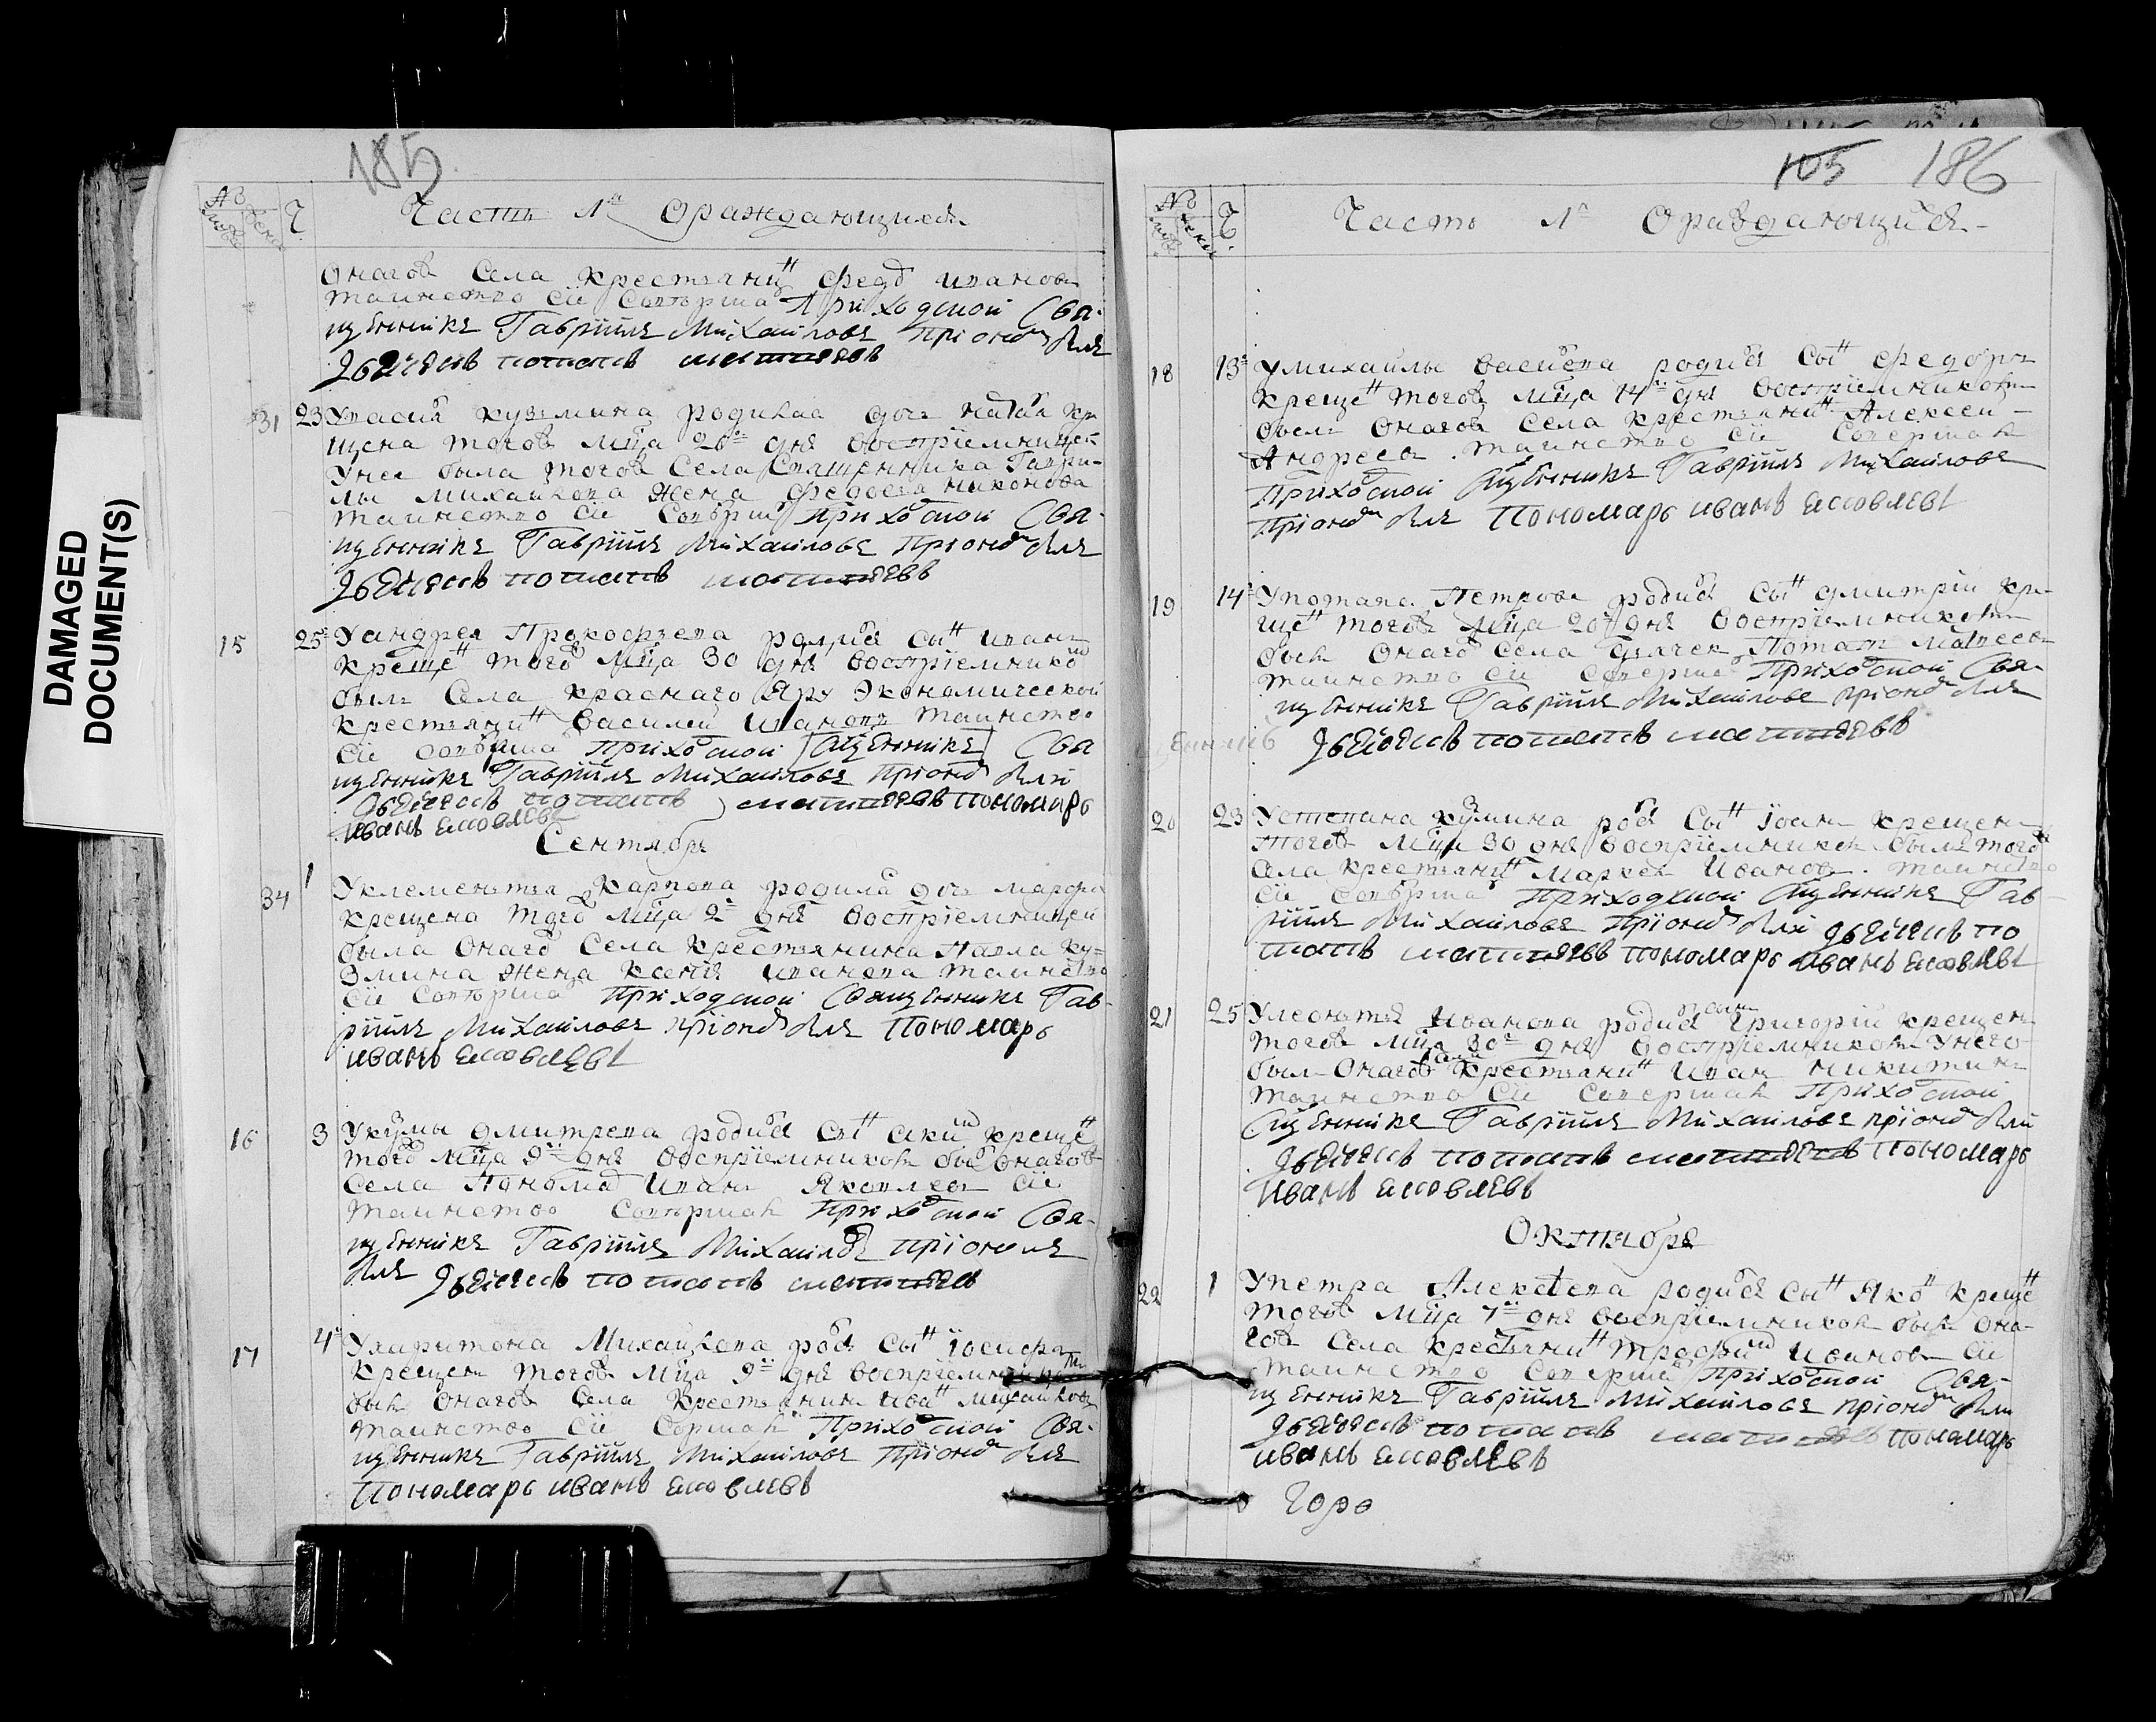 DAMAGED
DOCUMENT(S)
185
№ Ч Часть 1я Ораждающихся
онагов Села крестьянин Федр Иванов
таинство сие Соверша Приходской Свя-
щенникъ Гаврiилъ Михаиловъ При оном былъ
дьячекъ потапъ матвѣевъ
31 23 Увасил кузьмина родилас дочь Натал кре
щена тогов мца 26 дня восприемницей
Унее была тогов Села Священника Гаври-
лы михаилова жена Федося никонова
таинство сие Соверши Приходской Свя-
щенникъ Гаврiилъ Михаиловъ При оном былъ
дьячекъ потапъ матвѣевъ
15 25 Уандрея Прокофьева родился Сын иванъ
крещен того мца 30 дня восприемником
былъ Села краснаго Яру Экономической
крестьянин Василей Иванов таинство
сие соверша Приходской Священникъ Свя
щенникъ Гаврiилъ Михаиловъ При оном были
дьячекъ потапъ матвѣевъ пономарь
иванъ яковлевъ
Сентябрь
34 1 Уклементея Карпова родила дочь марфа
крещена того мца 2 дня восприемницей
была онаго Села крестьянина Павла ку-
змина жена Ксения иванова таинство
сие Соверша Приходской Священникъ Гав-
рiилъ Михаиловъ При оном былъ Пономарь
иванъ яковлевъ
16 3 Укузмы дмитрева родился Сын креще
того мца 9 дня восприемником был онагов
Села Пономар Иванъ Яковлев сие
таинство Совершал Приходской Свя-
щенникъ Гаврiилъ Михаиловъ При ономъ
былъ дьячекъ потапъ матвѣевъ
17 4 Ухаритона Михаилова родс Сын iосифъ
крещенъ тогов мца 9 дня восприемником
был онагов Села Крестьянин Иван михаилов
таинство сие Соршал Приходской Свя-
щенникъ Гаврiилъ Михаиловъ При оном былъ
Пономарь иванъ яковлевъ
105 186
№ Ч Часть 1я Ораждающийся
18 13 Умихайлы Васильева родился Сын Федоръ
крещен тогов мца 14 дня восприемником
былъ онагов Села крестьянин Алексей
Андреев таинство сие Совершал
Приходской Священникъ Гаврiилъ Михаиловъ
При оном былъ Пономарь иванъ яковлевъ
19 14 Употапа Петрова родился Сын дмитрiй кре-
щен тогов мца 20 дня восприемником
был онаго Села дьячек Потап Матвеев
таинство сие Соверша Приходской Свя-
щенникъ Гаврiилъ Михаиловъ При оном былъ
дьячекъ потапъ матвѣевъ
20 23 Устепана кузмина родс Сын iоанъ крещенъ
тогов мца 30 дня восприемником былъ того
Села крестьянин Маркел Иванов таинство
сие Соверша Приходской Священникъ Гав-
рiилъ Михаиловъ При оном были дьячекъ по
тапъ матвѣевъ пономарь иванъ яковлевъ
21 25 Улеонтея Иванова родился сынъ Григорiй крещенъ
тогов мца 30 дня восприемником Унего
былъ онагов Села Крестьянин Иван никитинъ
таинство сие Совершал Приходской
Священникъ Гаврiилъ Михаиловъ При оном были
дьячекъ потапъ матвѣевъ пономарь
Иванъ яковлевъ
Октября
22 1 Упетра Алексѣева родился Сын Яко крещен
тогов мца 7 дня восприемником был она-
гов Села крестьянин трофим Иванов сие
таинство Соверша Приходской Свя-
щенникъ Гаврiилъ Михаиловъ При оном были
дьячекъ потапъ матвѣевъ пономарь
иванъ яковлевъ